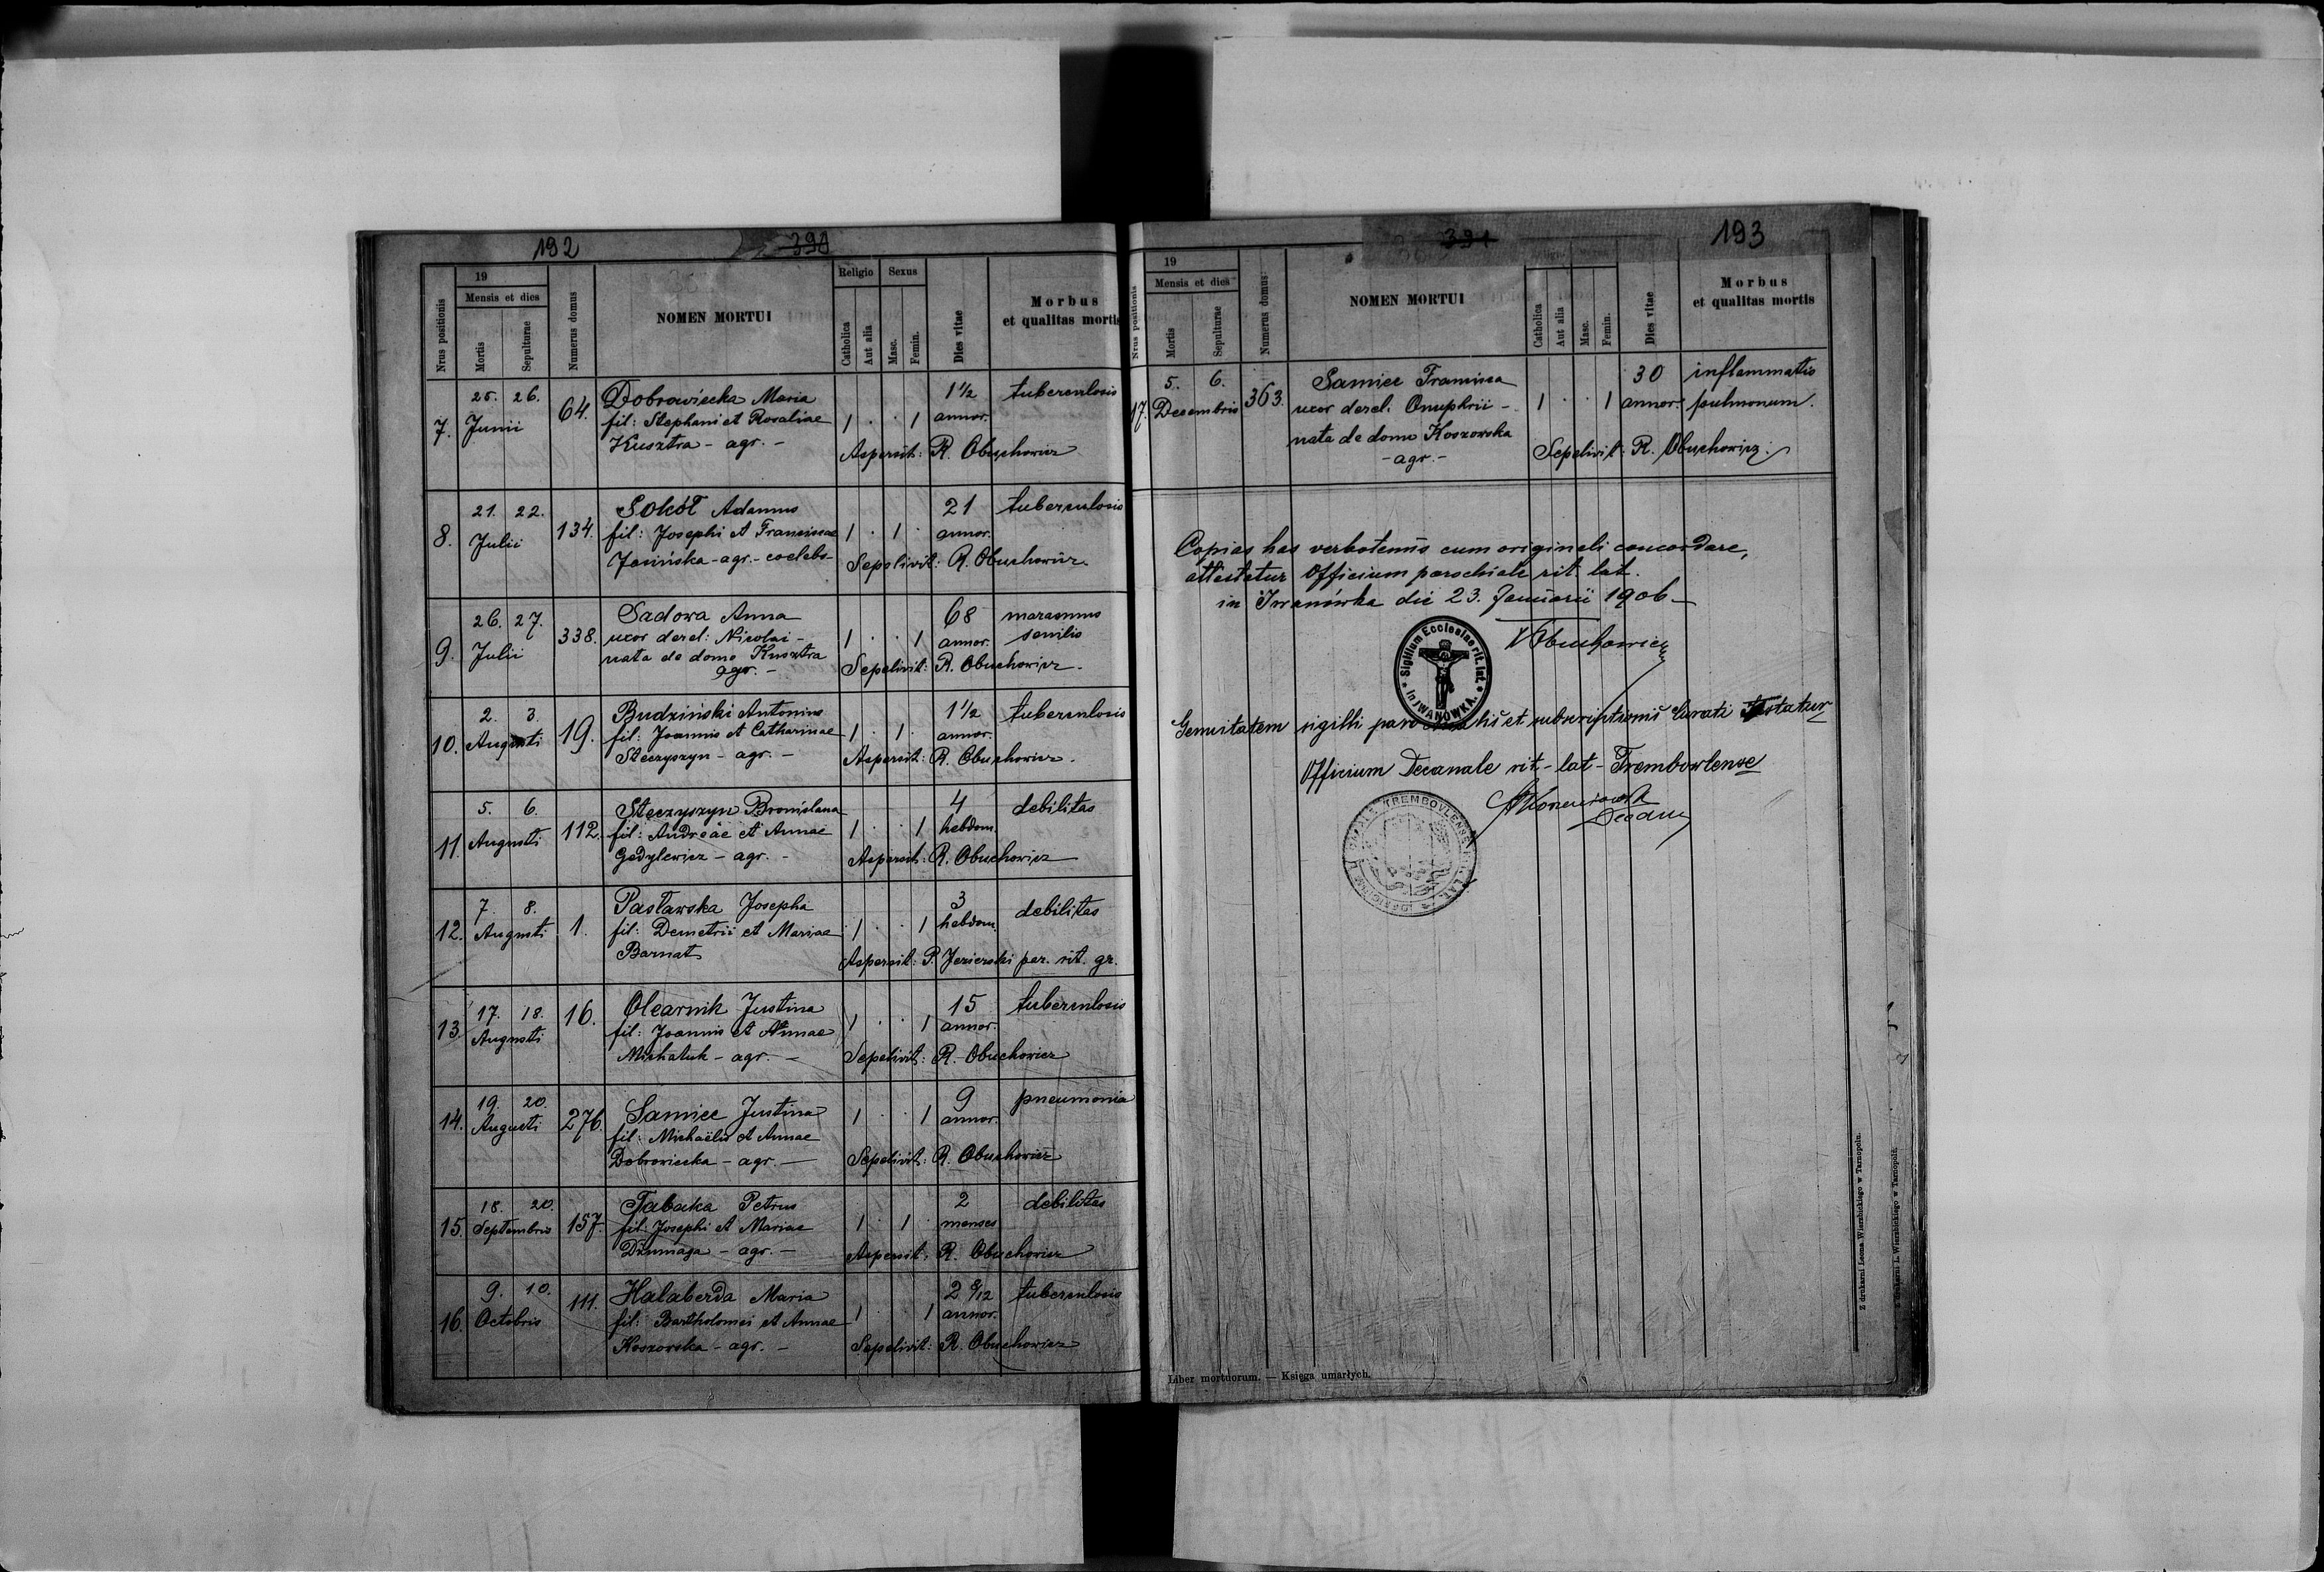 192
390
19
Mensis et dies
Religio
Sexus
Nrus positionis
Mortis
Sepulturae
Numerus domus
NOMEN MORTUI
Catholica
Aut alia
Masc.
Femin.
Dies vitae
Morbus
et qualitas mortis
25. 26.
7. Junii
64.
Dobrowiecka Maria
fil: Stephani et Rosaliae
Kusztra - agr. -
1 . . 1
1 1/2
annor.
tuberculosis
Aspersit: R. Obuchowicz
21. 22.
8. Julii
134.
Sokół Adamus
fil: Josephi et Franciscae
Jasińska - agr. - coelebs -
1 . 1 .
21
annor.
tuberculosis
Sepelivit: R. Obuchowicz.
26. 27.
9. Julii
338.
Sadowa Anna
uxor derel: Nicolai -
nata de domo Kusztra
agr. -
1 . . 1
68
annor.
marasmus
senilis
Sepelivit: R. Obuchowicz.
2. 3.
10. Augusti
19.
Budziński Antonius
fil: Joannis et Catharinae
Steczyszyn - agr. -
1 . 1 .
1 1/2
annor.
tuberculosis
Aspersit: R. Obuchowicz.
5. 6.
11. Augusti
112.
Steczyszyn Bronislava
fil: Andreae et Annae
Godylewicz - agr. -
1 . . 1
4
hebdom.
debilitas
Aspersit: R. Obuchowicz
7. 8.
12. Augusti
1.
Pasławska Josepha
fil: Demetrii et Mariae
Barnat
1 . . 1
3
hebdom.
debilitas
Aspersit: P. Jezierski par. rit. gr.
17. 18.
13. Augusti
16.
Olearnik Justina
fil: Joannis et Annae
Michaluk - agr. -
1 . . 1
15
annor.
tuberculosis
Sepelivit: R. Obuchowicz
19. 20.
14. Augusti
276.
Samiec Justina
fil: Michaëlis et Annae
Dobrowiecka - agr. -
1 . . 1
9
annor.
pneumonia
Sepelivit: R. Obuchowicz
18. 20.
15. Septembris
157.
Tabaka Petrus
fil: Josephi et Mariae
Dżumaga - agr. -
1 . 1 .
2
menses
debilitas
Aspersit: R. Obuchowicz
9. 10.
16. Octobris
111.
Halaberda Maria
fil: Bartholomei et Annae
Koszowska - agr. -
1 . . 1
annor.
tuberculosis
Sepelivit: R. Obuchowicz
391
193
19
Mensis et dies
Nrus positionis
Mortis
Sepulturae
Numerus domus
NOMEN MORTUI
Catholica
Aut alia
Masc.
Femin.
Dies vitae
Morbus
et qualitas mortis
5. 6.
17. Decembris
363.
Samiec Francisca
uxor derel. Onuphrii -
nata de domo Koszowska
- agr. -
1 . . 1
30
annor.
inflammatio
pulmonum.
Sepelivit: R. Obuchowicz.
Copias has verbotenus cum originali concordare,
attestatur Officium parochiale rit. lat.
in Iwanówka die 23. Januarii 1906 -
Obuchowicz
Sigillum Ecclesiae rit. lat.
in IWANÓWKA.
Genuitatem sigilli parochialis et subscriptionis Curati testatur
Officium Decanale rit - lat - Trembowlense
Decanus
Liber mortuorum. — Księga umarłych.
Z drukarni Leona Wierzbickiego w Tarnopolu.
Z drukarni L. Wierzbickiego w Tarnopolu.